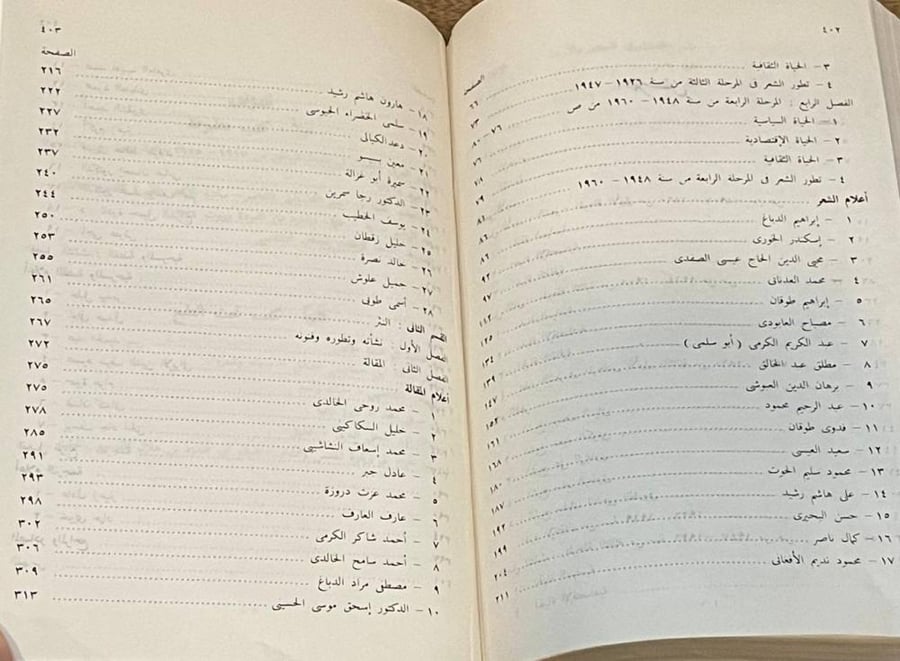 ٤٠٢
الصفحة
٣ – الحياة الثقافية
٤ – تطور الشعر فى المرحلة الثالثة من سنة ١٩٢٦ – ١٩٤٧ ٦٦
الفصل الرابع : المرحلة الرابعة من سنة ١٩٤٨ – ١٩٦٠ من ص ٧٣
١ – الحياة السياسية ٧٦ – ٨٠
٢ – الحياة الإقتصادية ٧٦
٣ – الحياة الثقافية ٧٨
٤ – تطور الشعر فى المرحلة الرابعة من سنة ١٩٤٨ – ١٩٦٠ ٧٩
أعلام الشعر ٨٦
١ – إبراهيم الدباغ ٨٦
٢ – إسكندر الخورى ٩٢
٣ – محيى الدين الحاج عيسى الصفدى ٩٧
٤ – محمد العدنانى
٥ – إبراهيم طوقان ١١٢
٦ – مصباح العابودى ١٢٥
٧ – عبد الكريم الكرمى ( أبو سلمى ) ١٣٤
٨ – مطلق عبد الخالق ١٣٩
٩ – برهان الدين العبوشى ١٤٧
١٠ – عبد الرحيم محمود ١٥٢
١١ – فدوى طوقان ١٦١
١٢ – سعيد العيسى ١٦٨
١٣ – محمود سليم الحوت ١٨٠
١٤ – على هاشم رشيد ١٨٧
١٥ – حسن البحيرى ١٩٢
١٦ – كمال ناصر ١٩٩
١٧ – محمود نديم الأفغانى ٢٠٤
٢١١
٤٠٣
الصفحة
١٨ – هارون هاشم رشيد ٢١٦
١٩ – سلمى الخضراء الجيوسى ٢٢٢
٢٠ – دعد الكيالى ٢٢٧
٢١ – معين بسيسو ٢٣٢
٢٢ – سميرة أبو غزالة ٢٣٧
٢٣ – الدكتور رجا سمرين ٢٤٠
٢٤ – يوسف الخطيب ٢٤٤
٢٥ – خليل زقطان ٢٥٠
٢٦ – خالد نصرة ٢٥٣
٢٧ – جميل علوش ٢٥٥
٢٨ – أسمى طوبى ٢٦١
القسم الثانى : النثر ٢٦٥
الفصل الأول : نشأته وتطوره وفنونه ٢٦٧
الفصل الثانى : المقالة ٢٧٢
أعلام المقالة ٢٧٥
١ – محمد روحى الخالدى ٢٧٥
٢ – خليل السكاكينى ٢٧٨
٣ – محمد إسعاف النشاشيبى ٢٨٥
٤ – عادل جبر ٢٩١
٥ – محمد عزت دروزة ٢٩٣
٦ – عارف العارف ٢٩٨
٧ – أحمد شاكر الكرمى ٣٠٢
٨ – أحمد سامح الخالدى ٣٠٦
٩ – مصطفى مراد الدباغ ٣٠٩
١٠ – الدكتور إسحق موسى الحسينى ٣١٣